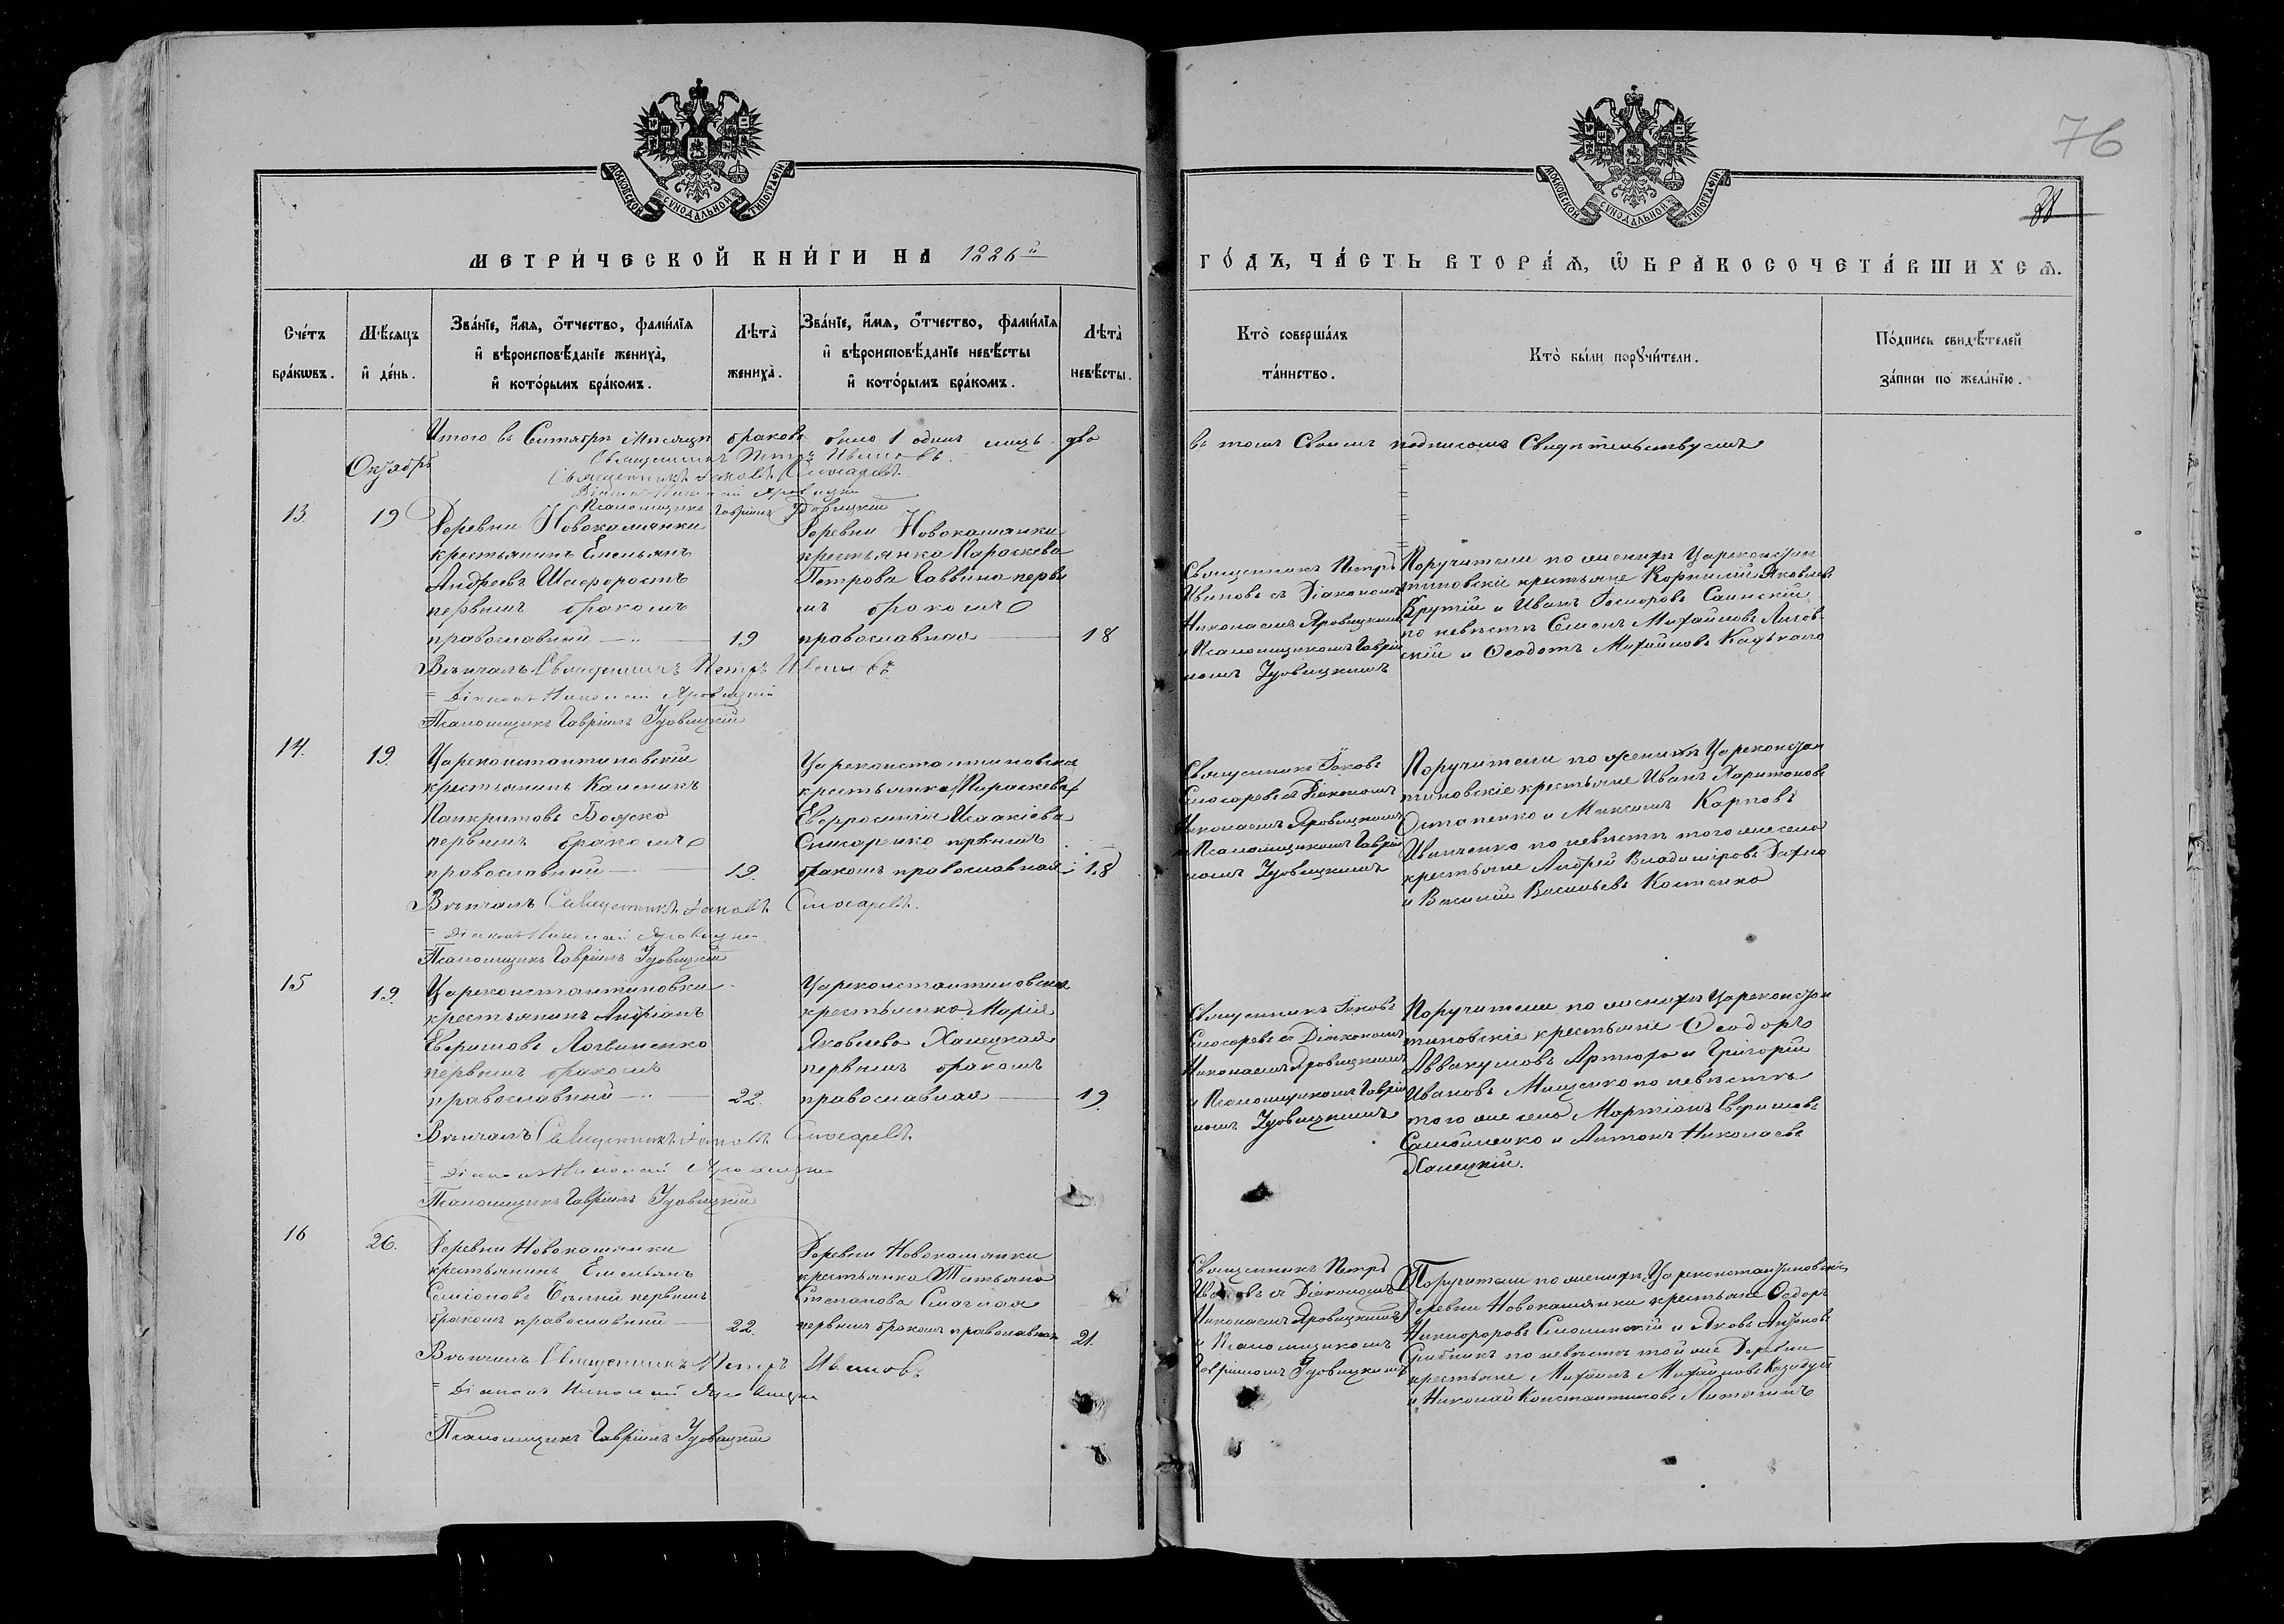 76
38
МОСКОВСКОЙ СѴНОДАЛЬНОЙ ТИПОГРАФІИ
МОСКОВСКОЙ СѴНОДАЛЬНОЙ ТИПОГРАФІИ
МЕТРИ́ЧЕСКОЙ КНИ́ГИ НА 1886й
ГО́ДЪ, ЧА́СТЬ ВТОРА́Я, Ѡ БРАКОСОЧЕТА́ВШИХСЯ.
Сче́тъ бра́кѡвъ.
Мѣ́сяцъ и де́нь.
Зва́нїе, и́мя, о́тчество, фами́лїя и вѣроисповѣ́данїе жениха̀, и кото́рымъ бра́комъ.
Лѣта̀ жениха̀.
Зва́нїе, и́мя, о́тчество, фами́лїя и вѣроисповѣ́данїе невѣ́сты и кото́рымъ бра́комъ.
Лѣта̀ невѣ́сты.
Кто̀ соверша́лъ та́инство.
Кто̀ бы́ли порꙋчи́тели.
По́дпись свидѣ́телей за́писи по жела́нїю.
Итого въ Сентябрѣ мѣсяцѣ браковъ было 1 один лицъ два
въ томъ Своимъ подписомъ Свидѣтельствуемъ
Священникъ Петръ Ивановъ
Октябрь
Священникъ Іаковъ Слюсаревъ
Діаконъ Николай Яровицкій
Псаломщикъ Гавріилъ Удовицкій
13.
19
Деревни Новокаманки
крестьянинъ Емельянъ
Андреевъ Шаферостъ
первымъ бракомъ
православный
19
Деревни Новокаманки
крестьянка Параскева
Петрова Саввина перв
мъ бракомъ
православная
18
Священникъ Петръ
Ивановъ съ Діакономъ
Николаемъ Яровицкимъ
и Псаломщикомъ Гаврі
иломъ Удовицкимъ
Поручители по женихѣ Цареконстан
тиновскіе крестьяне Корнилій Яковлевъ
Крутій и Иванъ
по невѣстѣ Семенъ Михайловъ
скій и Ѳеодотъ Михайловъ
Вѣнчалъ Священникъ Петръ Ивановъ
Діаконъ Николай Яровицкій
Псаломщикъ Гавріилъ Удовицкій
14.
19.
Цареконстантиновскій
крестьянинъ Калиникъ
Панкратовъ Божко
первымъ бракомъ
православный
19.
Цареконстантиновская
крестьянка (Параскева)
Евфросинія Исаакіева
Слюсаренко первымъ
бракомъ православная
18
Священникъ Іаковъ
Слюсаревъ съ Діакономъ
Николаемъ Яровицкимъ
и Псаломщикомъ Гаврі
иломъ Удовицкимъ
Поручители по женихѣ Цареконстан
тиновскіе крестьяне Иванъ Харитоновъ
Остапенко и Максимъ Карповъ
Иванченко по невѣстѣ того же села
крестьяне Андрей Владиміровъ
и Василій Васильевъ Костенко
Вѣнчалъ Священникъ Іаковъ Слюсаревъ
Діаконъ Николай Яровицкій
Псаломщикъ Гавріилъ Удовицкій
15
19.
Цареконстантиновки
крестьянинъ Андріанъ
Евфимовъ Логвиненко
первымъ бракомъ
православный
22.
Цареконстантиновская
крестьянка Марія
Яковлева Халецкая
первымъ бракомъ
православная
19.
Священникъ Іаковъ
Слюсаревъ съ Діакономъ
Николаемъ Яровицкимъ
и Псаломщикомъ Гаврі
иломъ Удовицкимъ
Поручители по женихѣ Цареконстан
тиновскіе крестьяне Ѳеодоръ
Аввакумовъ Артюхъ и Григорій
Ивановъ Мищенко по невѣстѣ
того же села Мартіанъ Евфимовъ
Самойленко и Антонъ Николаевъ
Халецкій.
Вѣнчалъ Священникъ Іаковъ Слюсаревъ
Діаконъ Николай Яровицкій
Псаломщикъ Гавріилъ Удовицкій
16
26.
Деревни Новокаманки
крестьянинъ Емельянъ
Симіоновъ Бѣлый первымъ
бракомъ православный
22.
Деревни Новокаманки
крестьянка Татьяна
Степанова Смаглая
первымъ бракомъ православная
21.
Священникъ Петръ
Ивановъ съ Діакономъ
Николаемъ Яровицкимъ
и Псаломщикомъ
Гавріиломъ Удовицкимъ
Поручители по женихѣ Цареконстантиновскіе
Деревни Новокаманки крестьяне Ѳедоръ
Никифоровъ и Яковъ Антоновъ
по невѣстѣ той же Деревни
крестьяне Михаилъ Михайловъ
и Николай Константиновъ
Вѣнчалъ Священникъ Петръ Ивановъ
Діаконъ Николай Яровицкій
Псаломщикъ Гавріилъ Удовицкій